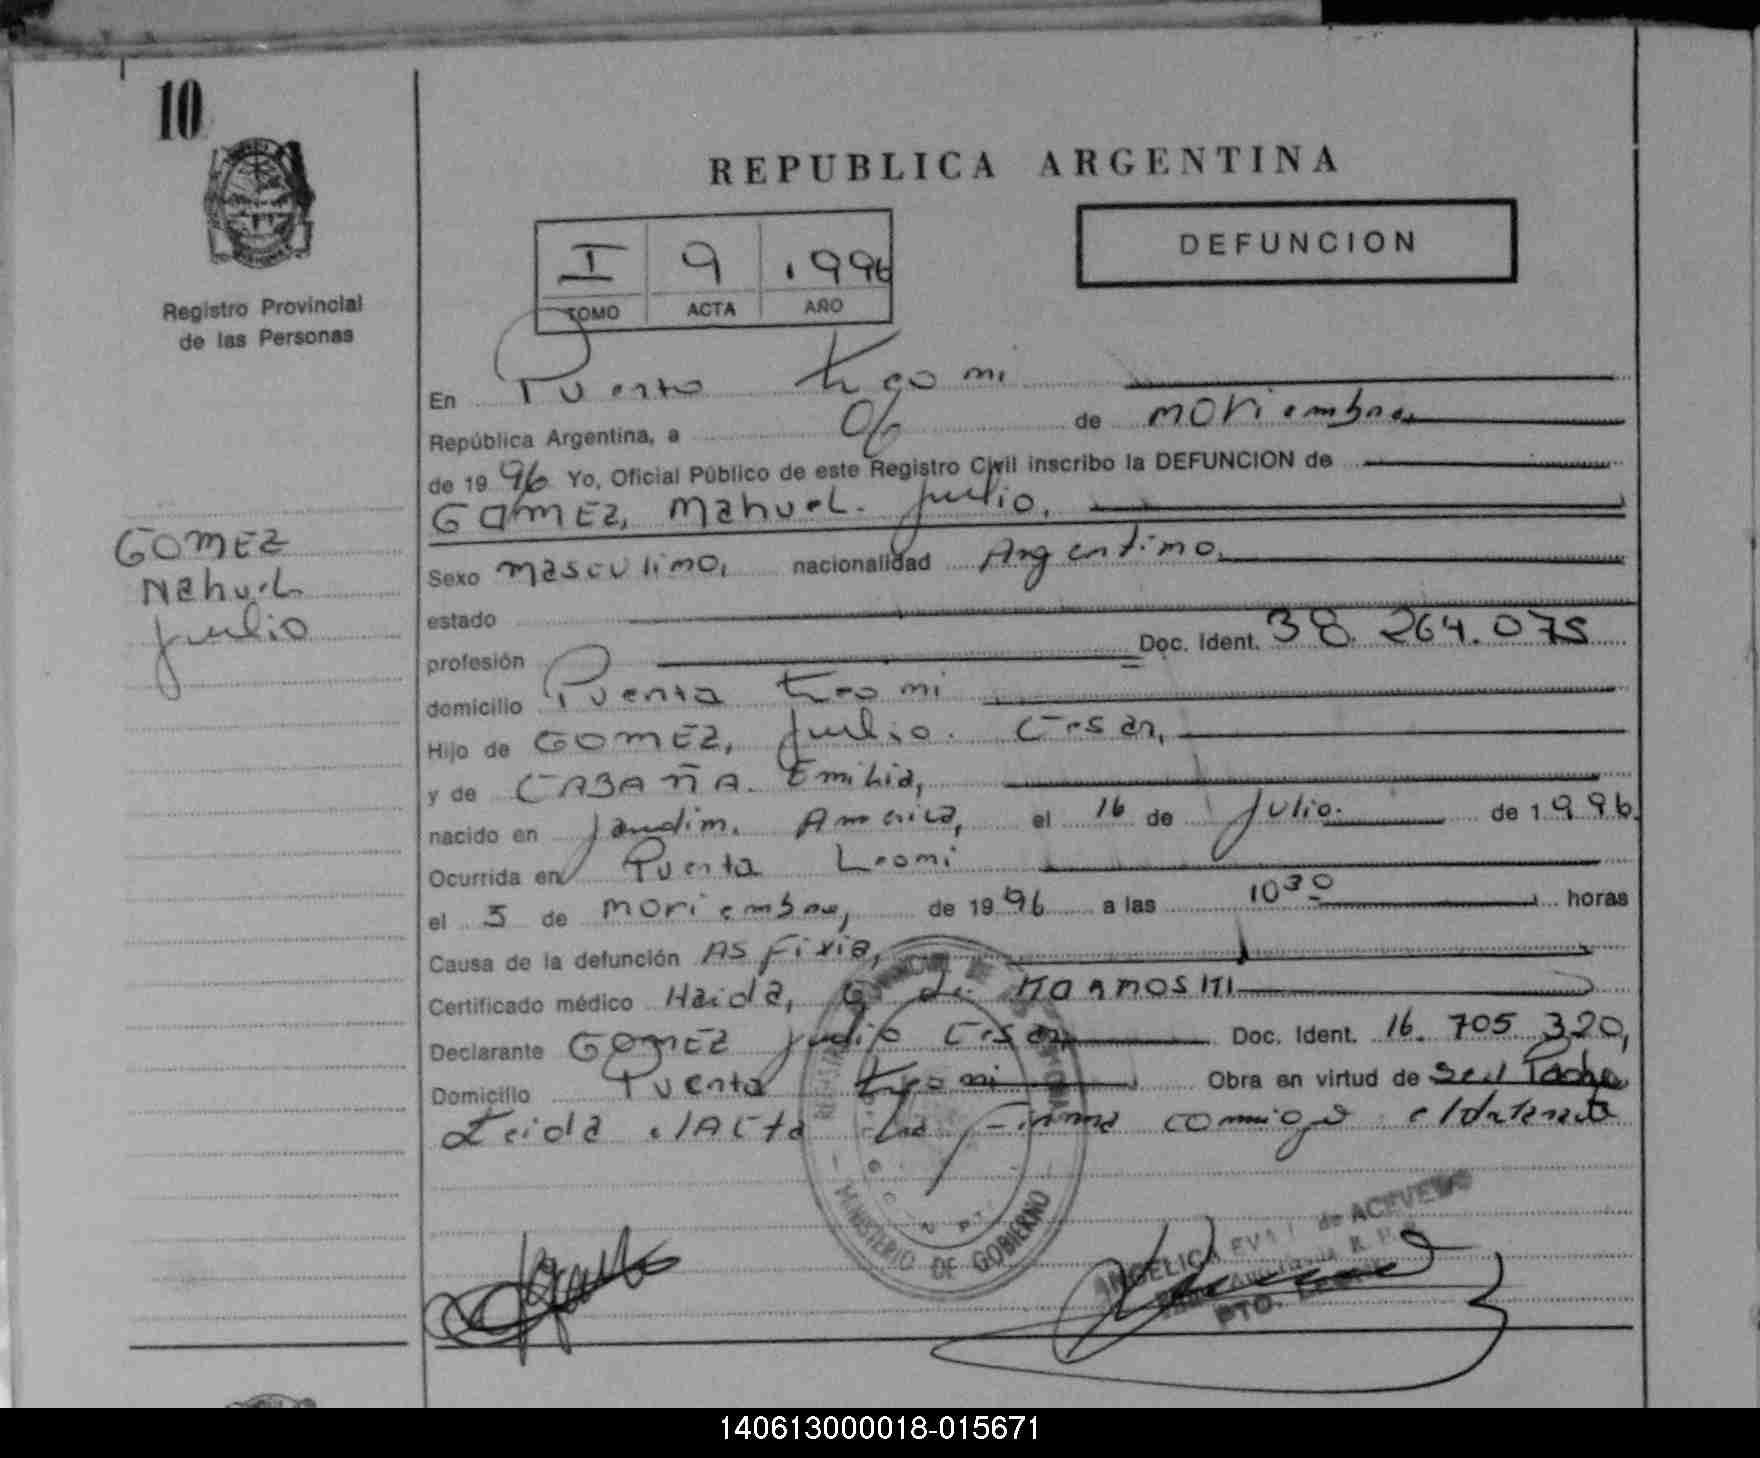 10
REPUBLICA ARGENTINA
DEFUNCION
I 9 1996
TOMO ACTA AÑO
Registro Provincial
de las Personas
En Puerto Leoni
República Argentina, a 06 de noviembre
de 1996 Yo, Oficial Público de este Registro Civil inscribo la DEFUNCION de
GOMEZ, Nahuel Julio.
GOMEZ
Nahuel
Julio
Sexo masculino, nacionalidad Argentino.
estado
profesión Doc. Ident. 38.264.075
domicilio Puerto Leoni
Hijo de GOMEZ, Julio Cesar,
y de CABAÑA Emilia,
nacido en Jardin America, el 16 de Julio de 1996
Ocurrida en Puerto Leoni
el 5 de noviembre, de 1996 a las 10 30 horas
Causa de la defunción Asfixia,
Certificado médico Haida, G. de
Declarante GOMEZ Julio Cesar Doc. Ident. 16.705.320,
Domicilio Puerto Leoni Obra en virtud de ser Padre
Leida el Acta la firma conmigo el declarante
MINISTERIO DE GOBIERNO
ANGELICA de ACEVEDO
PTO. LEONI
140613000018-015671